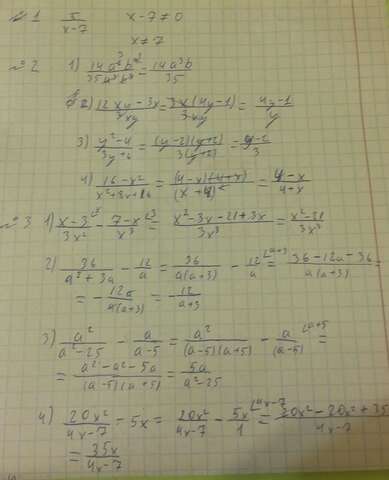 №1 5/(x-7) x-7≠0
x≠7
№2 1) 14a⁴b³/35a³b² = 14a³b/35
2) (12xy-3x)/3xy = 3x(4y-1)/3xy = (4y-1)/y
3) (y²-4)/(3y+6) = (y-2)(y+2)/3(y+2) = (y-2)/3
4) (16-x²)/(x²+8x+16) = (4-x)(4+x)/(x+4)² = (4-x)/(4+x)
№3 1) (x-3)/3x² - (7-x)/x³ = (x²-3x-21+3x)/3x³ = (x²-21)/3x³
2) 36/(a²+3a) - 12/a = 36/a(a+3) - 12/a = (36-12a-36)/a(a+3) =
= -12a/a(a+3) = -12/(a+3)
3) a²/(a²-25) - a/(a-5) = a²/(a-5)(a+5) - a/(a-5) =
= (a²-a²-5a)/(a-5)(a+5) = 5a/(a²-25)
4) 20x²/(4x-7) - 5x = 20x²/(4x-7) - 5x/1 = (20x²-20x²+35)/(4x-7)
= 35x/(4x-7)